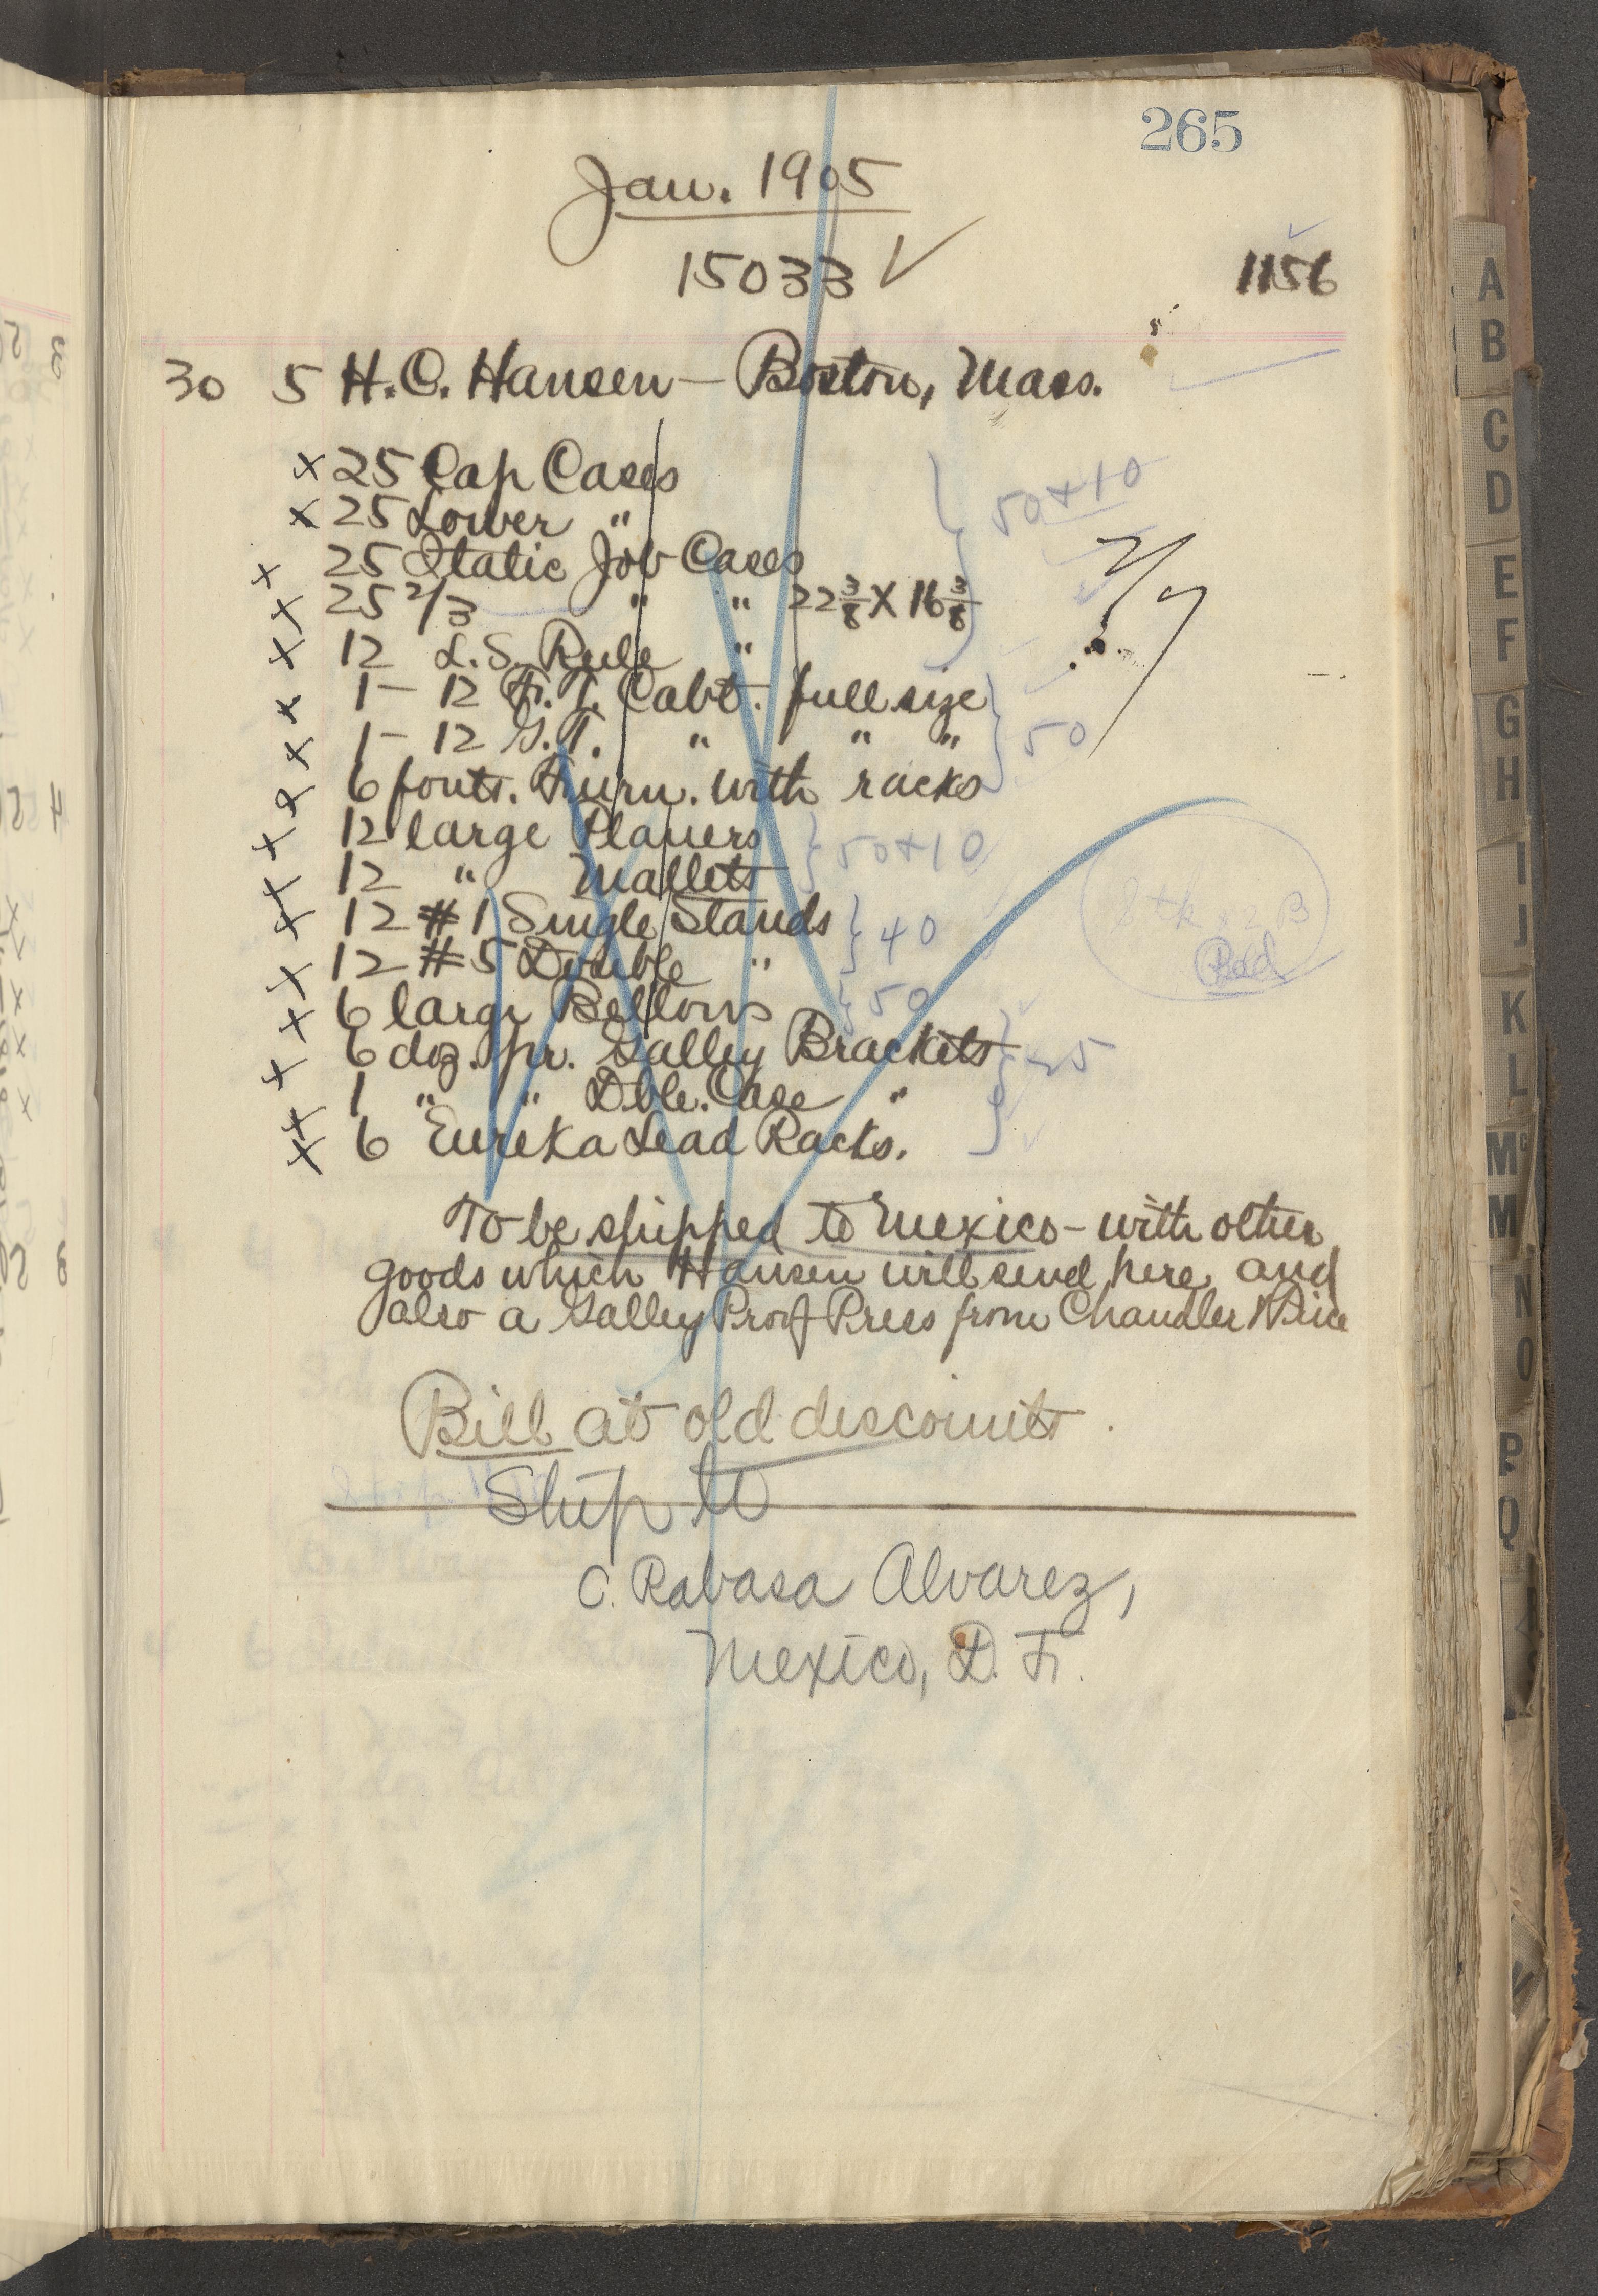 265
Jan. 1905
15033 ✓
1156
30 5 H.C. Hansen — Boston, Mass.
x 25 Cap Cases
x 25 Lower "
x 25 Italic Job Cases
x 25 2/3 " " 22 3/8 X 16 3/8
50+10
2/7
x 12 L.S. Rule "
x 1 - 12 F.T. Cabt. full size
x 1 - 12 G.T. " " "
50
x 6 fonts. Furn. with racks
x 12 large Planers
50+10
x 12 " Mallets
x 12 #1 Single Stands
40
x 12 #5 Double "
x 6 large Bellows
50
x 6 doz. pr. Galley Brackets
25
x 1 " " Dble. Case "
x 6 Eureka Lead Racks.
To be shipped to Mexico - with other
goods which Hansen will send here and
also a Galley Proof Press from Chandler & Price
Bill at old discounts.
Ship to
C. Rabasa Alvarez,
Mexico, D. F.
A
B
C
D
E
F
G
H
I
J
K
L
Mc
M
N
O
P
Q